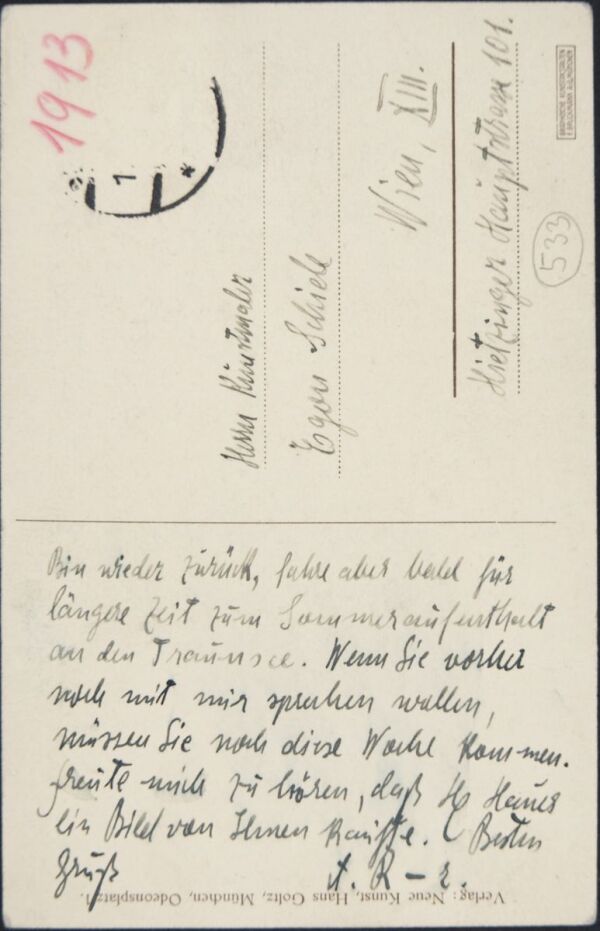 Bin wieder zurück, fahre aber bald für
längere Zeit zum Sommeraufenthalt
an den Traunsee. Wenn Sie vorher
noch mit mir sprechen wollen,
müssen Sie noch diese Woche kommen.
Freute mich zu hören, daß H Hauer
ein Bild von Ihnen kaufte. Besten
Gruß A. R-r.
Herrn Kunstmaler
Egon Schiele
Wien, XIII.
Hietzinger Hauptstrasse 101.
1913
1 *
533
Verlag: Neue Kunst, Hans Goltz, München, Odeonsplatz 1.